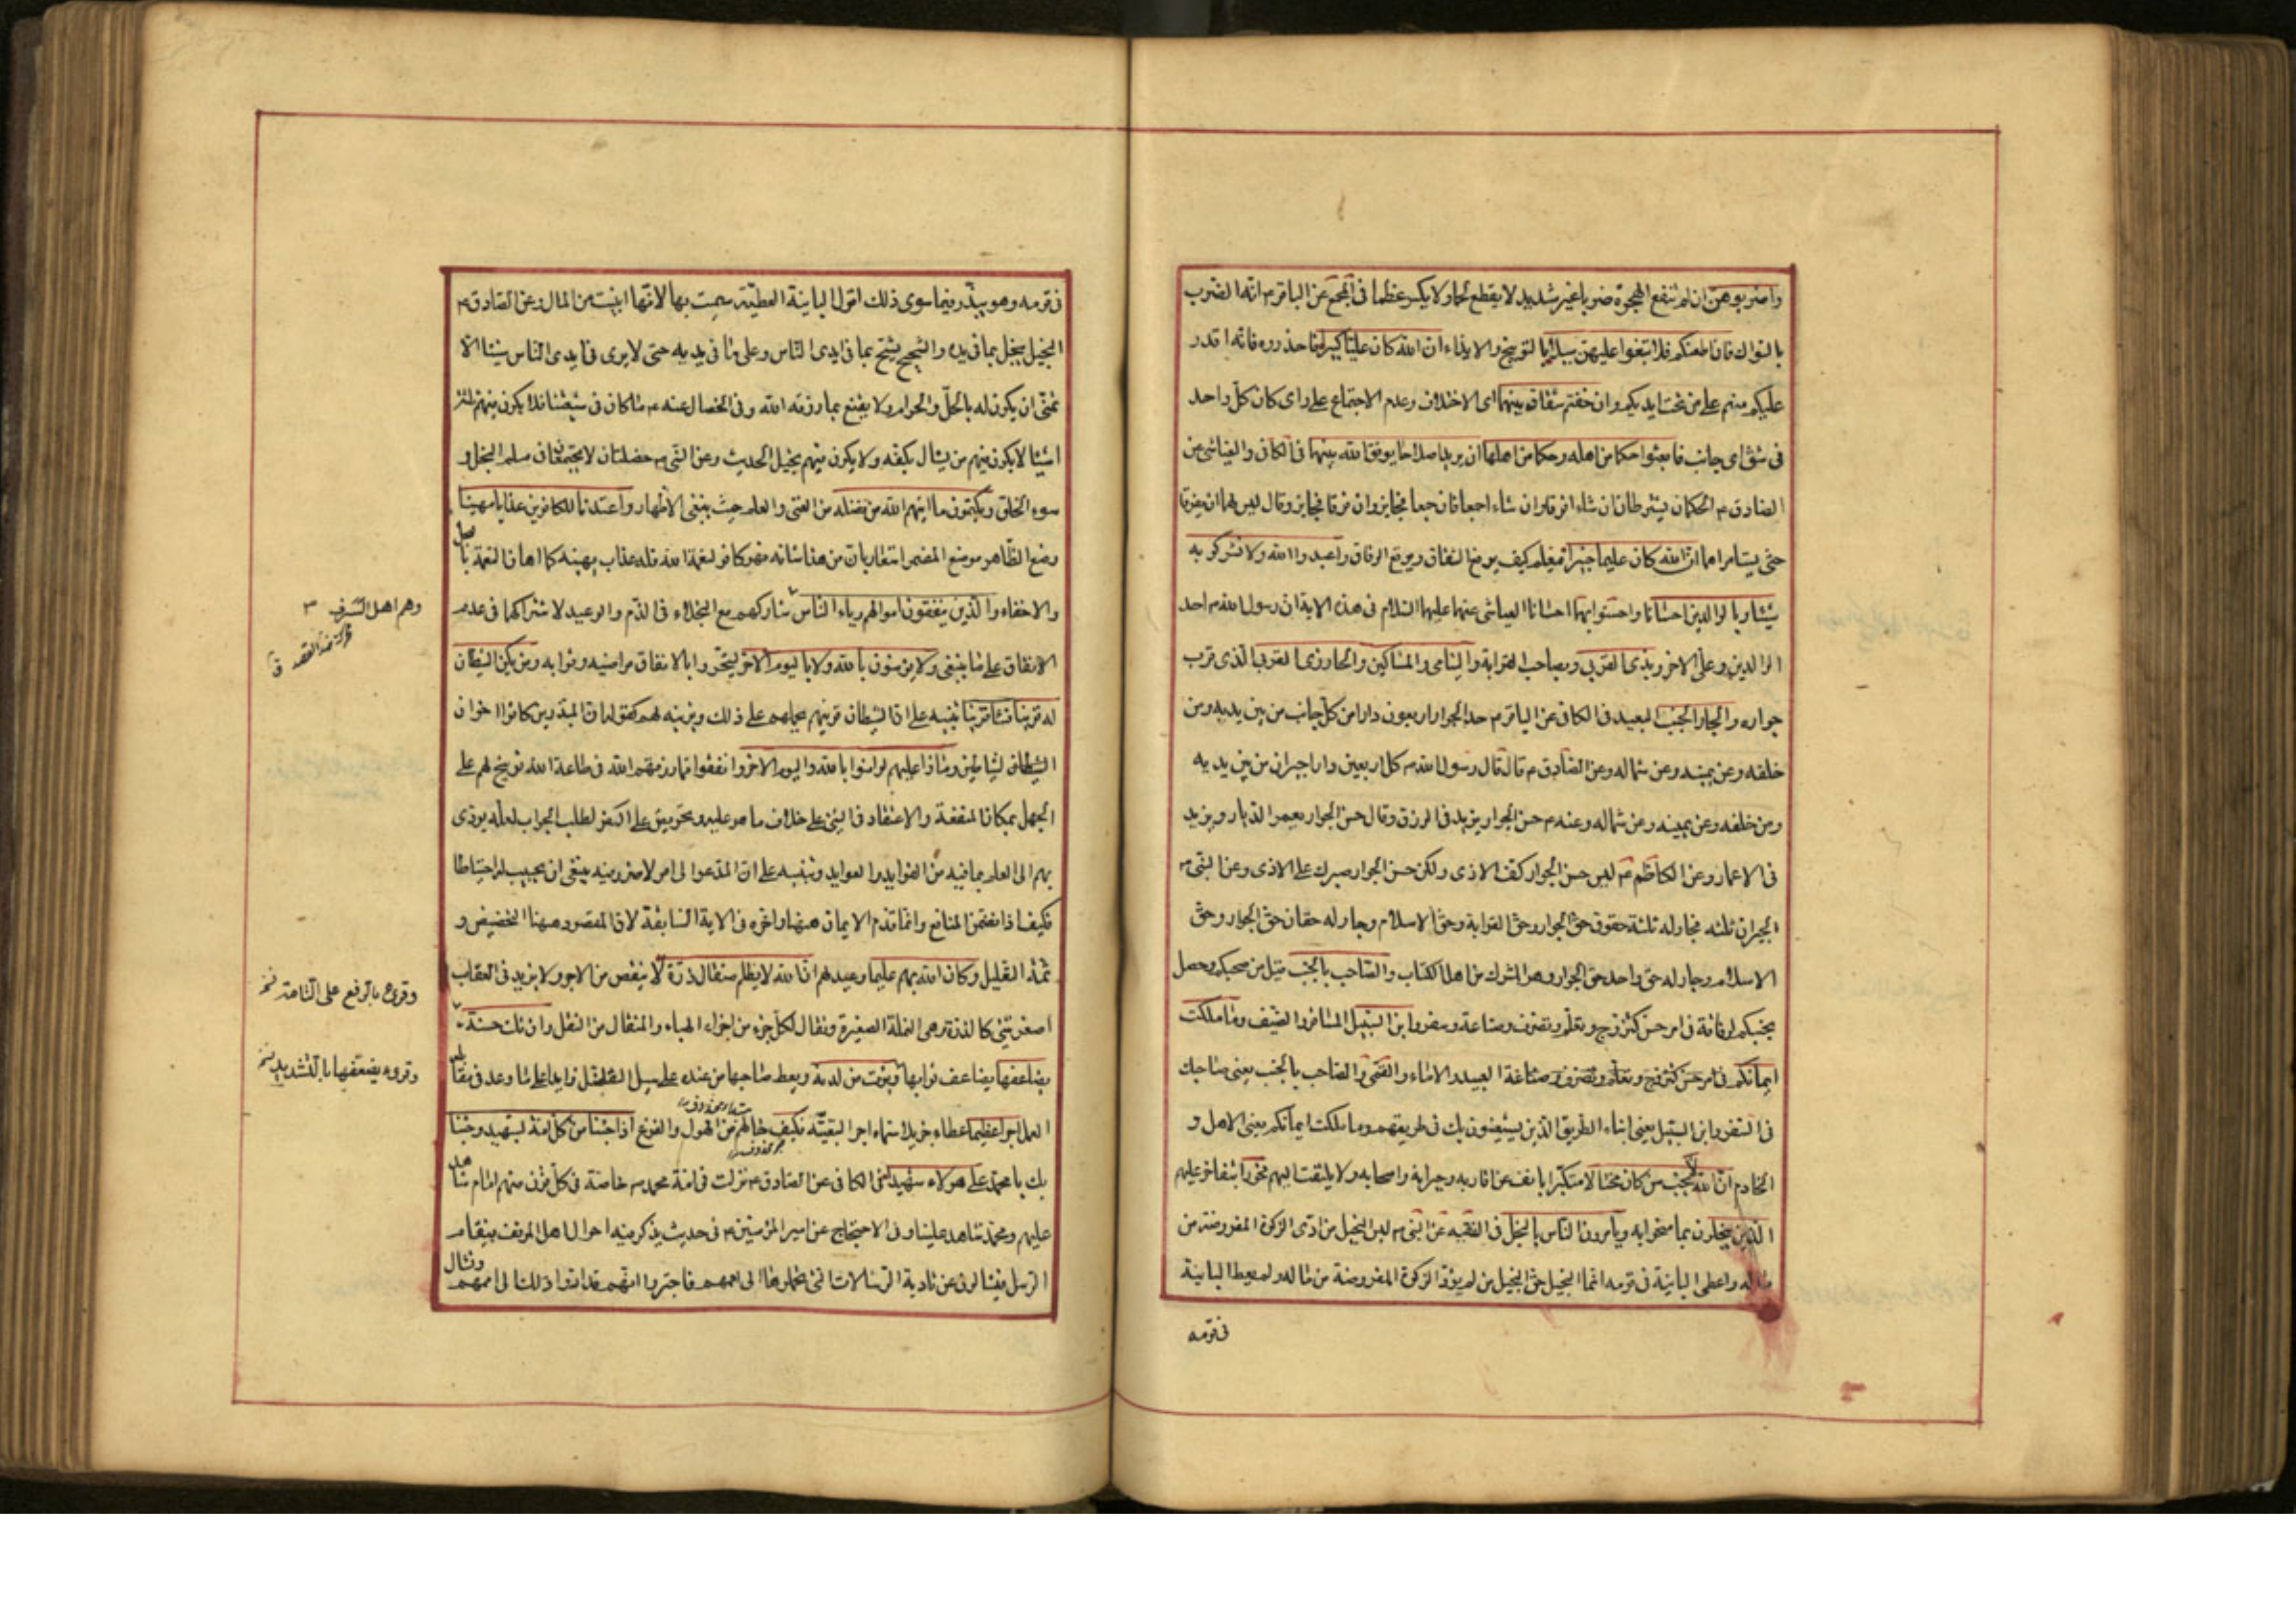 واضربوهن ان لم تنفع الهجرة ضربا غير شديد لا يقطع لحما ولا يكسر عظما فى المجمع عن الباقر ع انه الضرب
بالسواك فان اطعنكم فلا تبغوا عليهن سبيلا بالتوبيخ والايذاء ان الله كان عليا كبيرا فاحذروه فانه اقدر
عليكم منهم على من تحت ايديكم وان خفتم شقاق بينهما اى الاختلاف وعدم الاجتماع على راى كان كل واحد
فى شق اى جانب فابعثوا حكما من اهله وحكما من اهلها ان يريدا اصلاحا يوفق الله بينهما فى الكافى والعياشى عن
الصادق ع الحكمان يشترطان ان شاءا فرقا وان شاءا جمعا فان جمعا فجايز وان فرقا فجايز وقال ليس لهما ان يفرقا
حتى يستامراهما ان الله كان عليما خبيرا فيعلم كيف يرفع الشقاق ويوقع الوفاق واعبدوا الله ولا تشركوا به
شيئا وبالوالدين احسانا واحسنوا بهما احسانا العياشى عنهما عليهما السلام فى هذه الاية ان رسول الله ص احد
الوالدين وعلى الاخر وبذى القربى وبصاحب القرابة واليتامى والمساكين والجار ذى القربى الذى قرب
جواره والجار الجنب البعيد فى الكافى عن الباقر ع حد الجوار اربعون دارا من كل جانب من بين يديه ومن
خلفه وعن يمينه وعن شماله وعن الصادق ع قال قال رسول الله ص كل اربعين دارا جيران من بين يديه
ومن خلفه وعن يمينه وعن شماله وعنه ع حسن الجوار يزيد فى الرزق وقال حسن الجوار يعمر الديار ويزيد
فى الاعمار وعن الكاظم ع ليس حسن الجوار كف الاذى ولكن حسن الجوار صبرك على الاذى وعن النبى ص
الجيران ثلثه فجار له ثلثة حقوق حق الجوار وحق القرابة وحق الاسلام وجار له حقان حق الجوار وحق
الاسلام وجار له حق واحد حق الجوار وهو المشرك من اهل الكتاب والصاحب بالجنب قيل من صحبكم وحصل
بجنبكم لرفاقة فى امر حسن كتزوج وتعلم وتصرف وصناعة وسفر وابن السبيل المسافر والضيف وما ملكت
ايمانكم فى امر حسن كتزوج وتعلم وتصرف وصناعة العبيد والاماء والقمى والصاحب بالجنب يعنى صاحبك
فى السفر وابن السبيل يعنى ابناء الطريق الذين يستعينون بك فى طريقهم وما ملكت ايمانكم يعنى الاهل و
الخادم ان الله لا يحب من كان مختالا متكبرا يانف عن اقاربه وجيرانه واصحابه ولا يلتفت اليهم فخورا يتفاخر عليهم
الذين يبخلون بما منحوا به ويامرون الناس بالبخل فى الفقيه عن النبى ص ليس البخيل من ادى الزكوة المفروضة من
ماله واعطى الباينة فى قومه انما البخيل حق البخيل من لم يؤد الزكوة المفروضة من ماله ولم يعط الباينة
فى قومه
فى قومه وهو يبذر فيما سوى ذلك اقول الباينة العطية سميت بها لانها ابينت من المال وعن الصادق ع
البخيل يبخل بما فى يده والشحيح يشح بما فى ايدى الناس وعلى ما فى يديه حتى لا يرى فى ايدى الناس شيئا الا
تمنى ان يكون له بالحل والحرام ولا يقنع بما رزقه الله وفى الخصال عنه ع ما كان فى شيعتنا فلا يكون فيهم ثلثة
اشياء لا يكون فيهم من يسال بكفه ولا يكون فيهم بخيل الحديث وعن النبى ص خصلتان لا يجتمعان فى مسلم البخل و
سوء الخلق ويكتمون ما اتيهم الله من فضله من الغنى والعلم حيث ينبغى الاظهار واعتدنا للكافرين عذابا مهينا
وضع الظاهر موضع المضمر اشعارا بان من هذا شانه فهو كافر لنعمة الله فله عذاب يهينه كما اهان النعمة بالبخل
والاخفاء والذين ينفقون اموالهم رياء الناس شاركهم مع البخلاء فى الذم والوعيد لاشتراكهما فى عدم
الانفاق على ما ينبغى ولا يؤمنون بالله ولا باليوم الاخر ليتحروا بالانفاق مراضيه وثوابه ومن يكن الشيطان
له قرينا فساء قرينا تنبيه على ان الشيطان قرينهم يحملهم على ذلك ويزينه لهم كقوله ان المبذرين كانوا اخوان
الشياطين وماذا عليهم لو امنوا بالله واليوم الاخر وانفقوا مما رزقهم الله فى طاعة الله توبيخ لهم على
الجهل بمكان المنفعة والاعتقاد فى الشئ على خلاف ما هو عليه وتحريض على الفكر لطلب الجواب لعله يودى
بهم الى العلم بما فيه من الفوايد والعوايد وتنبيه على ان المدعو الى امر لا ضرر فيه ينبغى ان يجيب له احتياطا
فكيف اذا تضمن المنافع وانما قدم الايمان ههنا واخره فى الاية السابقة لان المقصود ههنا التخصيص و
ثمة التعليل وكان الله بهم عليما وعيد لهم ان الله لا يظلم مثقال ذرة لا ينقص من الاجر ولا يزيد فى العقاب
اصغر شئ كالذرة وهى النملة الصغيرة ويقال لكل جزء من اجزاء الهباء والمثقال من الثقل وان تك حسنة
يضاعفها يضاعف ثوابها ويؤت من لدنه ويعط صاحبها من عنده على سبيل التفضل زايدا على ما وعد فى مقابلة
العمل اجرا عظيما عطاء جزيلا سماه اجرا لتبعيته فكيف حالهم من الهول والفزع اذا جئنا من كل امة بشهيد وجئنا
بك يا محمد على هؤلاء شهيدا فى الكافى عن الصادق ع نزلت فى امة محمد ص خاصة فى كل قرن منهم امام شاهد
عليهم ومحمد شاهد علينا وفى الاحتجاج عن امير المؤمنين ع فى حديث يذكر فيه احوال اهل الموقف فيقام
الرسل فيسالون عن تادية الرسالات التى حملوها الى اممهم فاخبروا انهم قد ادوا ذلك الى اممهم وتسال
وهم اهل الشرف
وقرئ بالرفع على التامة
وقرئ يضعفها بالتشديد